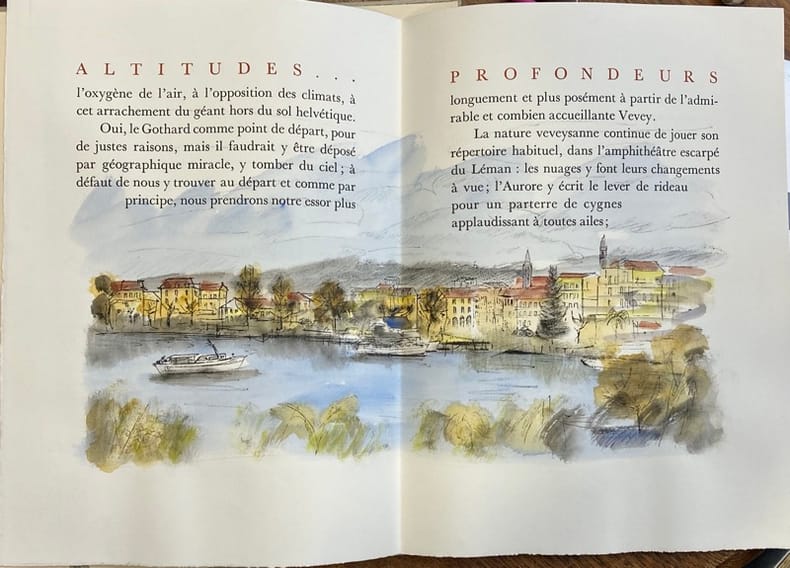 ALTITUDES...
l'oxygène de l'air, à l'opposition des climats, à
cet arrachement du géant hors du sol helvétique.
Oui, le Gothard comme point de départ, pour
de justes raisons, mais il faudrait y être déposé
par géographique miracle, y tomber du ciel ; à
défaut de nous y trouver au départ et comme par
principe, nous prendrons notre essor plus
PROFONDEURS
longuement et plus posément à partir de l'admi-
rable et combien accueillante Vevey.
La nature veveysanne continue de jouer son
répertoire habituel, dans l'amphithéâtre escarpé
du Léman : les nuages y font leurs changements
à vue ; l'Aurore y écrit le lever de rideau
pour un parterre de cygnes
applaudissant à toutes ailes ;